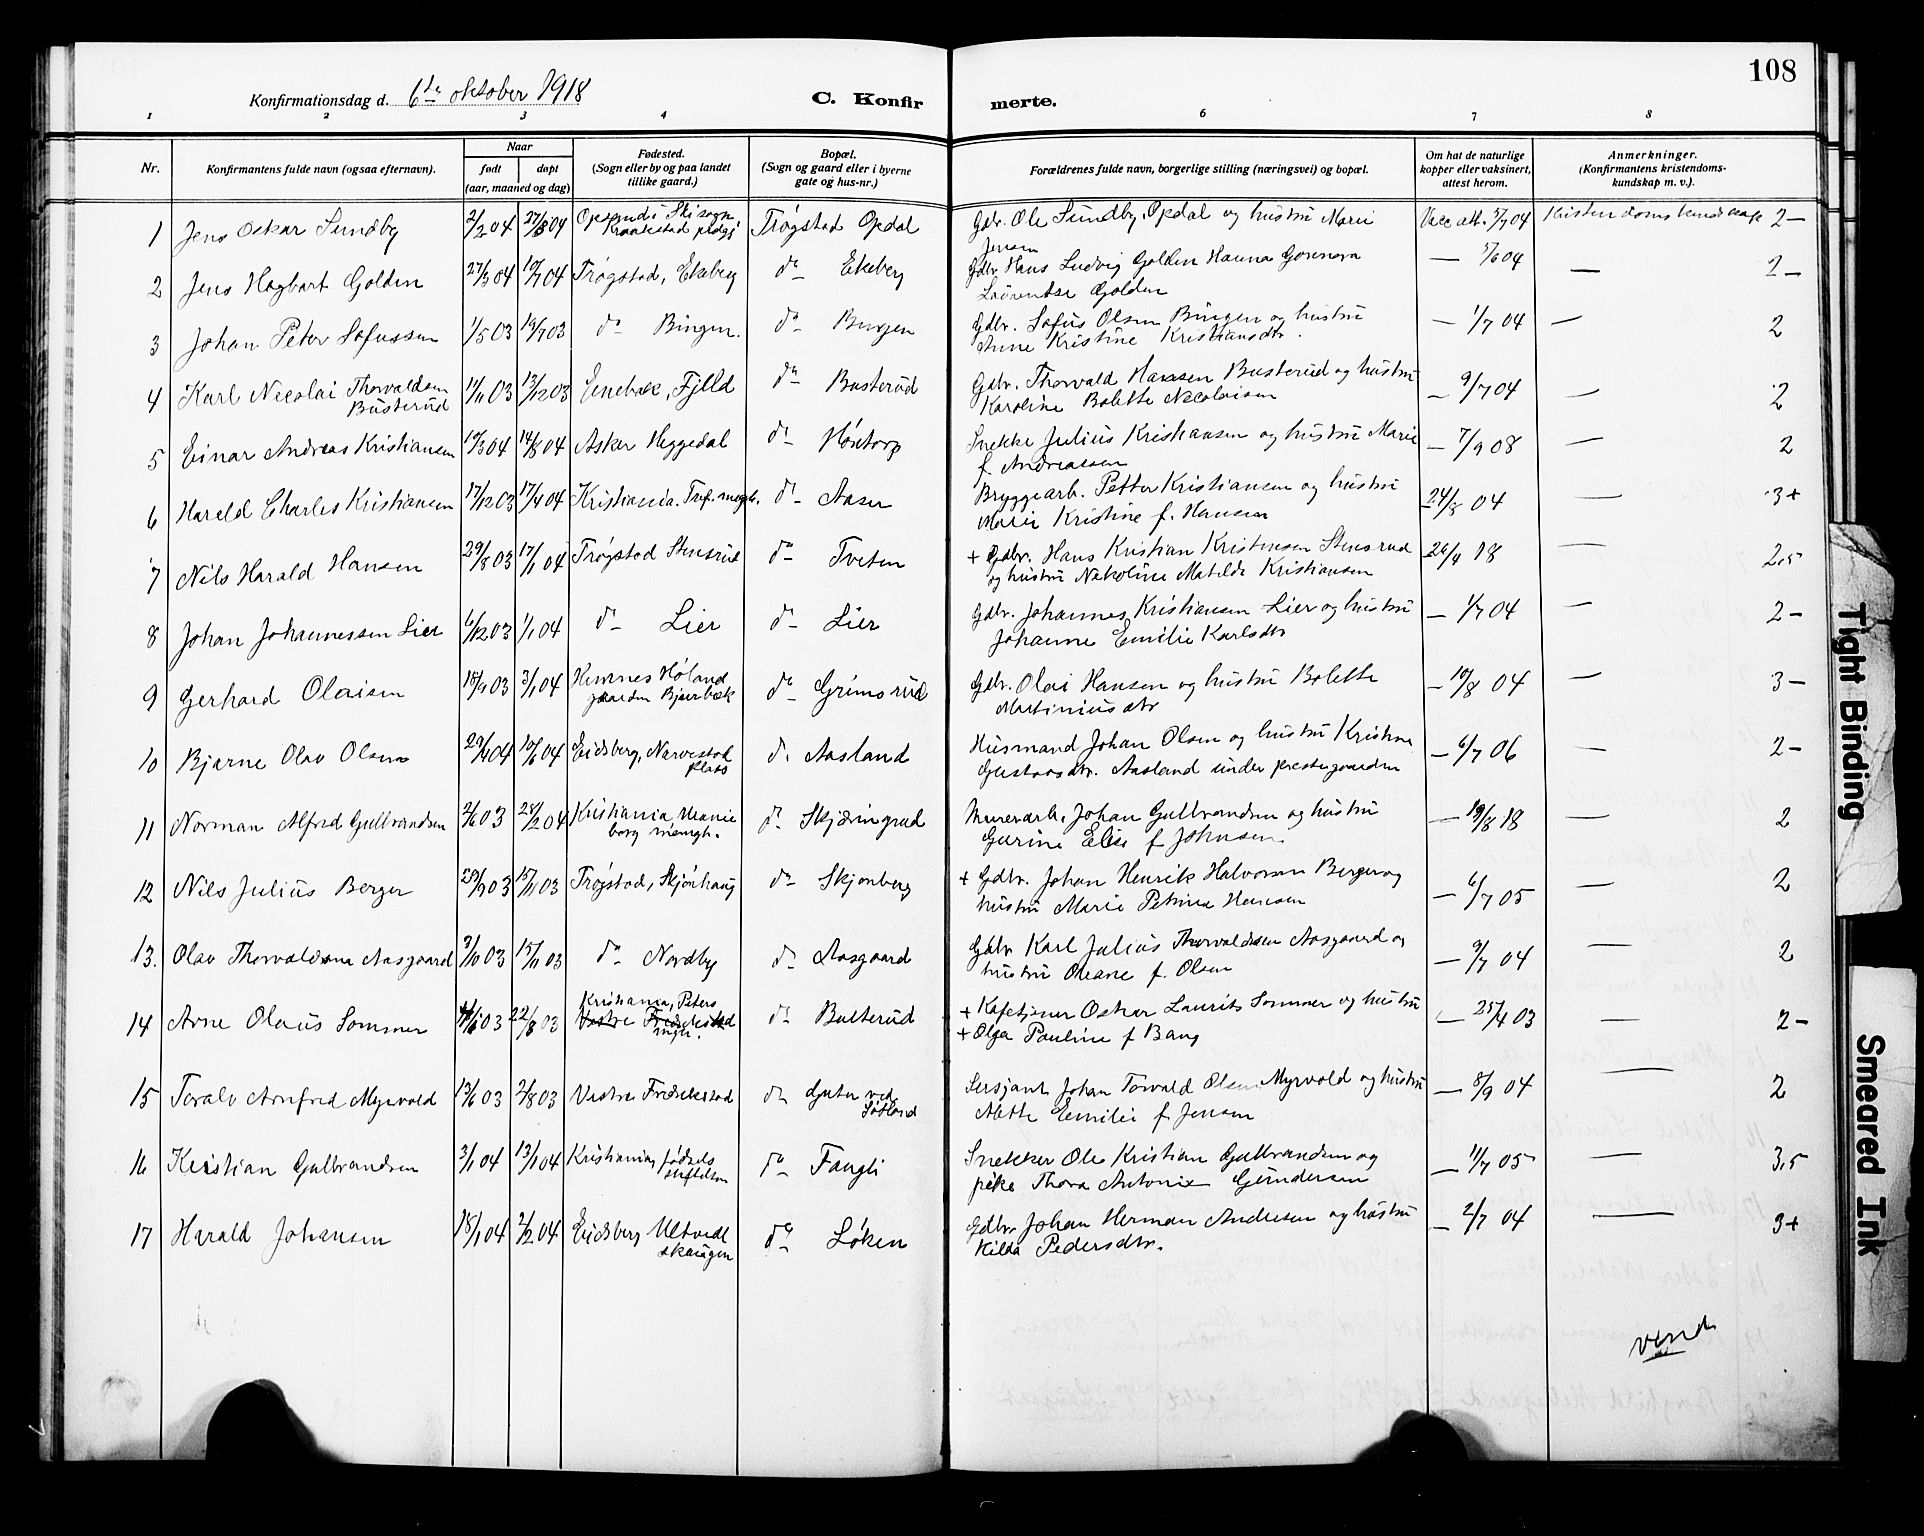 108
Konfirmationsdag d. 6te oktober 1918 C. Konfir merte.
1 2 3 4 5 6 7 8
Nr. Konfirmantens fulde navn (ogsaa efternavn). Naar født døpt (aar, maaned og dag) Fødested. (Sogn eller by og paa landet tillike gaard.) Bopæl. (Sogn og gaard eller i byerne gate og hus-nr.) Forældrenes fulde navn, borgerlige stilling (næringsvei) og bopæl. Om hat de naturlige kopper eller vaksinert, attest herom. Anmerkninger. (Konfirmantens kristendomskundskap m. v.).
1 Jens Oskar Sundby 2/2 04 27/3 04 i Ski sogn Kraakstad prdgj Trøgstad Opdal Gdbr. Ole Sundby, Opdal og hustru Marie Jensen Vacc att. 5/7 04 Kristendomskundskap 2–
2 Jens Hagbart Golden 27/3 04 10/7 04 Trøgstad, Ekeberg do Ekeberg Gdbr Hans Ludvig Golden Hanna Gunnora Laurentse Golden — 5/6 04 — 2–
3 Johan Peter Sofussen 1/5 03 19/7 03 do Bingen. do Bingen Gdbr. Sofus Olsen Bingen og hustru Anne Kristine Kristiansdtr. — 1/7 04 — 2
4 Karl Nicolai Thorvaldsen Busterud 11/11 03 13/12 03 Enebak, Fjeld do Busterud Gdbr. Thorvald Hansen Busterud og hustru Karoline Bolette Nicolaisen — 9/7 04 — 2
5 Einar Andreas Kristiansen 10/3 04 14/8 04 Asker Heggedal do Høntorp Snekke Julius Kristiansen og hustru Marie f. Andreassen — 7/9 08 — 2
6 Harald Charles Kristiansen 17/12 03 17/4 04 Kristiania. Tref. mngh. do Aasen Bryggearb. Petter Kristiansen og hustru Marie Kristine f. Hansen 24/8 04 — 3+
7 Nils Harald Hansen 29/8 03 17/1 04 Trøgstad Stensrud do Tveten + Gdbr. Hans Kristian Kristensen Stensrud og hustru Nikoline Matilde Kristiansen 26/4 18 — 2,5
8 Johan Johannessen Lier 6/12 03 1/1 04 do Lier do Lier Gdbr. Johannes Kristiansen Lier og hustru Johanne Emilie Karlsdtr — 1/7 04 — 2–
9 Gerhard Olaisen 18/9 03 3/1 04 Hemnes Høland gaarden Bjerbæk do Grimsrud Gdbr. Olai Hansen og hustru Bolette Martiniusdtr — 10/8 04 — 3–
10 Bjarne Olav Olsen 29/4 04 10/6 04 Eidsberg, Narvestad plads do Aasland Husmand Johan Olsen og hustru Kristine Gustavsdtr. Aasland under prestegaarden — 6/7 06 — 2–
11 Norman Alfred Gulbrandsen 2/6 03 28/2 04 Kristiania Uranienborg menigh. do Skjæringrud Murerarb. Johan Gulbrandsen og hustru Gurine Elise f Johnsen — 19/8 18 — 2
12 Nils Julius Berger 29/9 03 15/11 03 Trøgstad, Skjønhaug do Skjønberg + Gdbr. Johan Henrik Halvorsen Berger og hustru Marie Petrine Hansen — 6/7 05 — 2
13. Olav Thorvaldsen Aasgaard 3/10 03 15/11 03 do Nordby do Aasgaard Gdbr Karl Julius Thorvaldsen Aasgaard og hustru Oleane f. Olsen — 9/7 04 — 2
14 Arne Olaus Sommer 03 22/8 03 Kristiania, Peters mngh. Vestre Fredrikstad do Bulterud + Kafetjener Oskar Laurits Sommer og hustru + Olga Pauline f Bang — 25/4 03 — 2–
15 Toralv Arnfred Myrvold 13/6 03 2/8 03 Vestre Fredrikstad do Gjeten ved Søtland Sersjant Johan Torvald Olsen Myrvold og hustru Alette Emilie f Jensen — 8/9 04 — 2
16 Kristian Gulbrandsen 3/1 04 13/1 04 Kristiania, fødselsstiftelsen do Fangli Snekker Ole Kristian Gulbrandsen og pike Thora Antonie Gundersen — 11/7 05 — 3,5
17 Harald Johansen 18/1 04 2/2 04 Eidsberg Ultvedt skaugen do Løken Gdbr Johan Herman Andersen og hustru Kilda Pedersdtr. — 2/7 04 — 3+
vend
Tight Binding
Smeared Ink